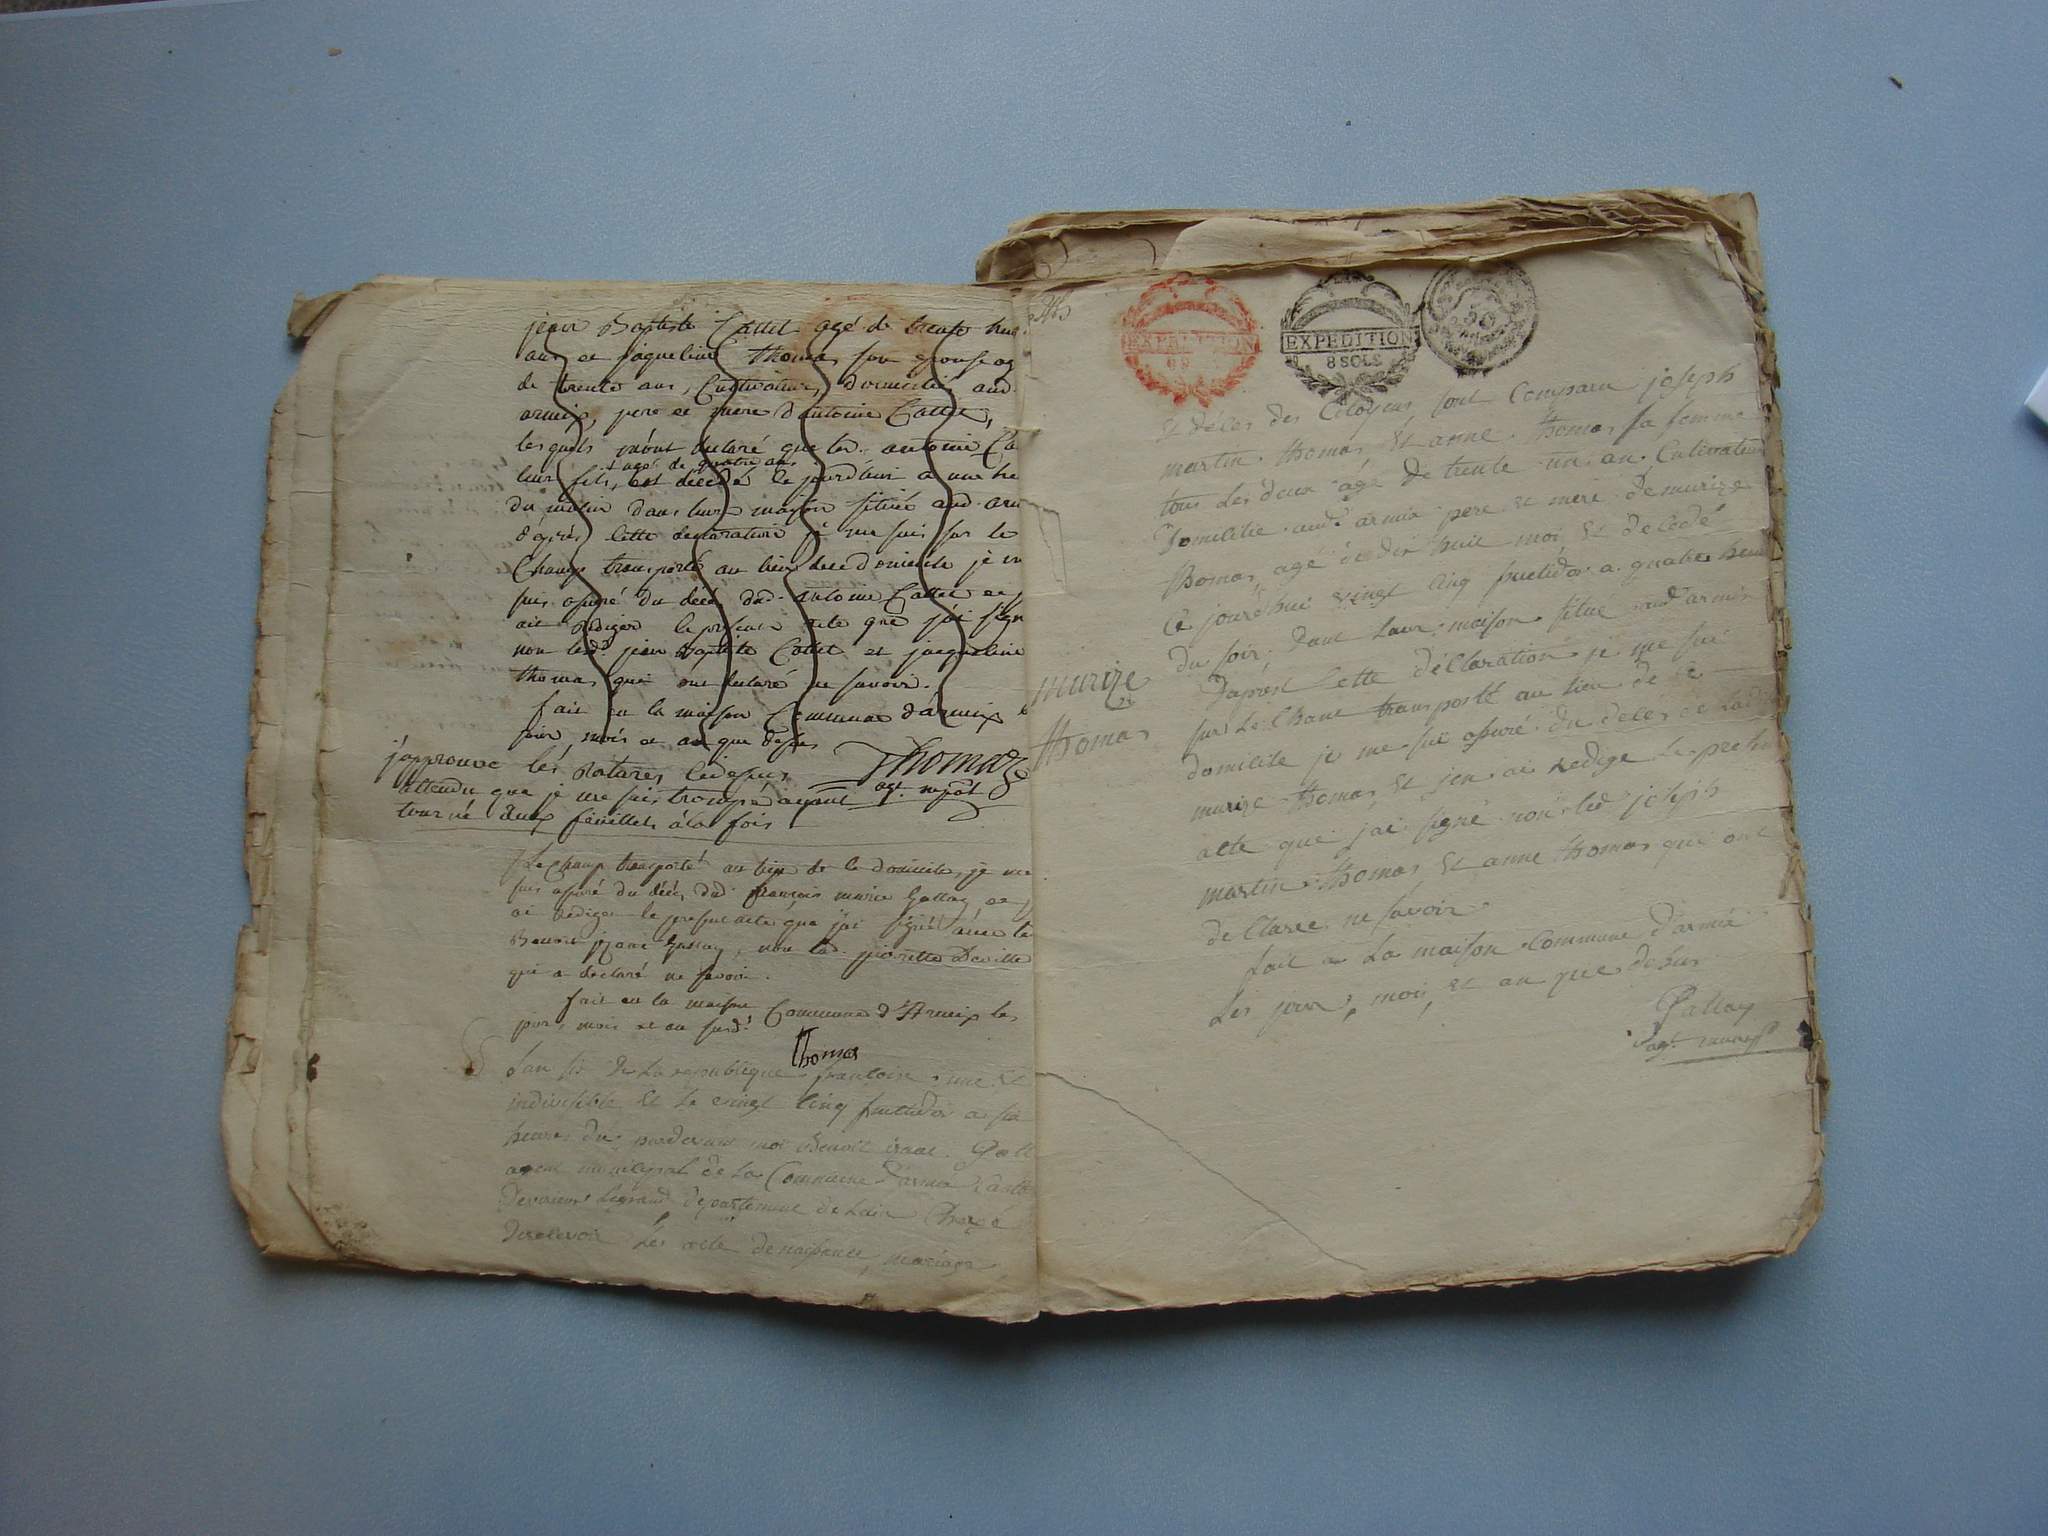 jean Baptiste Cattet agé de trente hui
ans et jaqueline thomas son epouse ag
de trente ans, Cultivateurs, domiciliés aud.
armix, pere et mere d'antoine Cattet,
lesquels m'ont declaré que led. antoine Ca
agé de quatre ans
leur fils, est décédé le jourd'hui a une he
du matin dans leur maison située aud. arm
d'après cette declaration je me suis sur le
Champ transporté au lieu de ce domicile je m
suis assuré du décés dud. antoine Cattet et j
ait rediger le present acte que j'ai sign
non led. jean Baptiste Cattet et jacqueline
thomas qui ont declaré ne savoir.
fait en la maison Commune d'armix le
jour, mois et an que dessus
Thomas
agt. mpal
j'approuve les ratures cidessus
attendu que je me suis trompé ayant
tourné deux feuillets à la fois
Le champ transporté au lieu de ce domicile, je me
suis assuré du décés dud. françois marie Gallay et j
ai rediger le present acte que j'ai signé avec le
Benoit jzaac Gallay, non lad. pierrette Deville
qui a declaré ne savoir.
fait en la maison Commune d'Armix les
jour, mois et an susd.
Thomas
Lan six de La republique francoise, une et
indivisible et Le vingt cinq fructidor a six
heures du pardevant moi Benoit izaac Gall
agent municipal de La Commune d'armix Canto
De virieux Legrand, departement de Lain Chargé
De recevoir Les acte de naissance, mariage
EXPEDITION
EXPEDITION
8 SOLS
50
et décés des Citoyens, sont Comparu joseph
martin thomas et anne thomas sa femme
tous Les deux agé de trente un an Cultivateur
Domicilie aud. armix pere et mere de murize
thomas, agé de dix huit moi et de Cedé
Ce jourd'hui vingt cinq fructidor a quatre heure
du soir, dant Leur maison situé aud armix
Dapres Cette déClaration je me sui
sur Le Chant transporté au Lieu de Ce
domicile je me sui assuré du deces de Lad
murize thomas et jen ai redige Le presen
acte que jai signé non led joseph
martin thomas et anne thomas que ont
de Claree ne savoir
fait a La maison Commune darmix
Les jour, mois, et an que desus
Gallay
agt. municp
murize
thomas